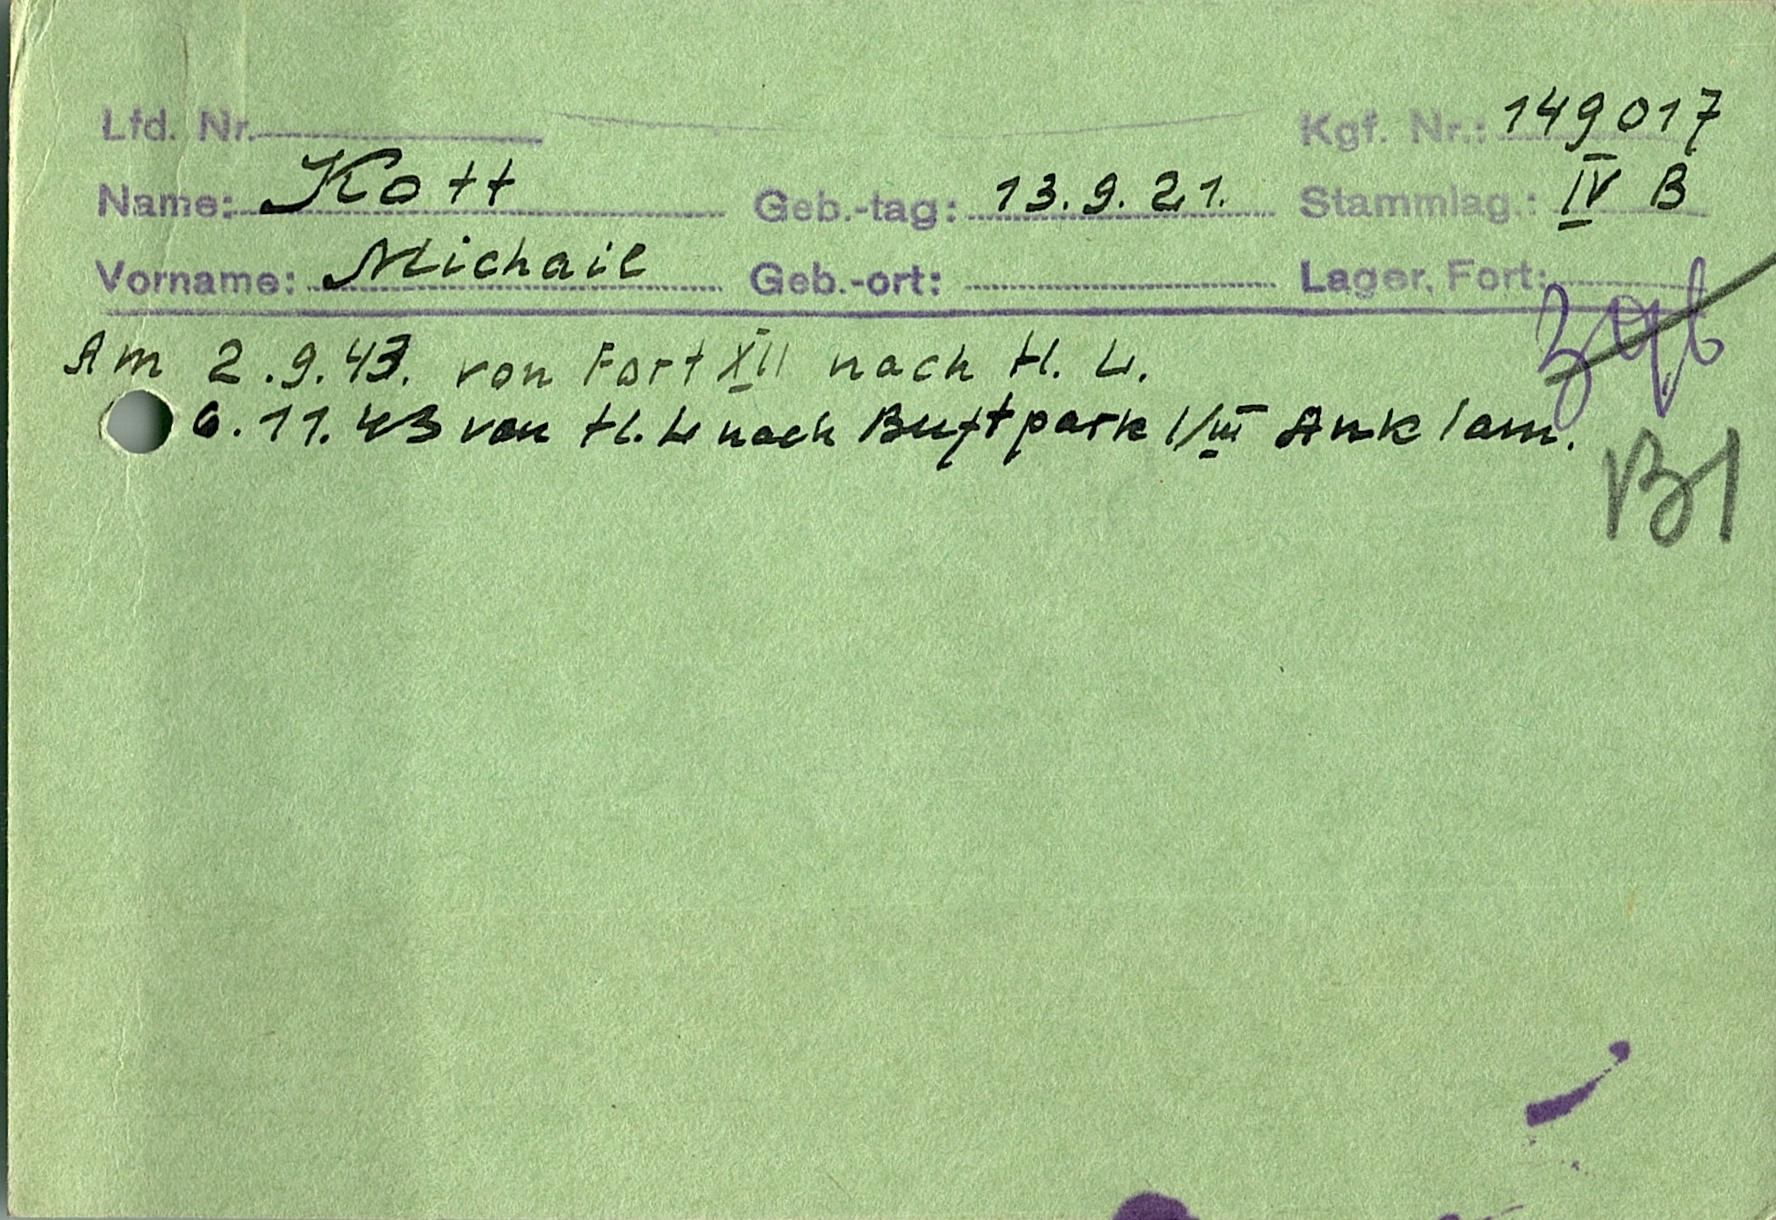 Lfd. Nr. Kgf. Nr.: 149017
Name: Kott Geb.-tag: 13.9.21. Stammlag.: IV B
Vorname: Michail Geb.-ort: Lager, Fort:
Am 2.9.43. von Fort XII nach H. L.
6.11.43 von H. L. nach Buftpark 1/III Anklam.
B1